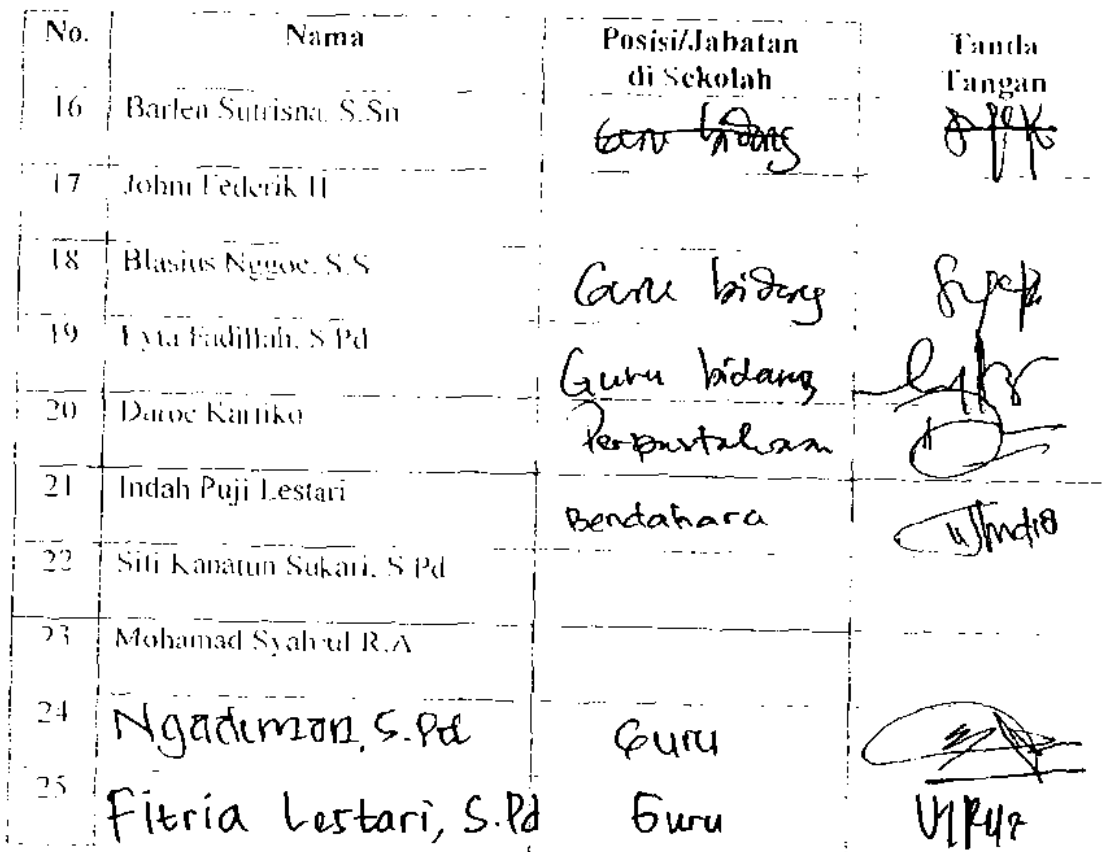 No. Nama Posisi/Jabatan Tanda
di Sekolah Tangan
16 Barlen Sutrisna, S.Sn Guru bidang
17 Johni Federik H
18 Blasius Nggoe, S.S Guru bidang
19 Lyta Fadillah, S.Pd Guru bidang
20 Daroe Kartiko Perpustakaan
21 Indah Puji Lestari Bendahara
22 Siti Kanatun Sukari, S.Pd
23 Mohamad Syahrul R.A
24 Ngadiman, S.Pd Guru
25 Fitria Lestari, S.Pd Guru